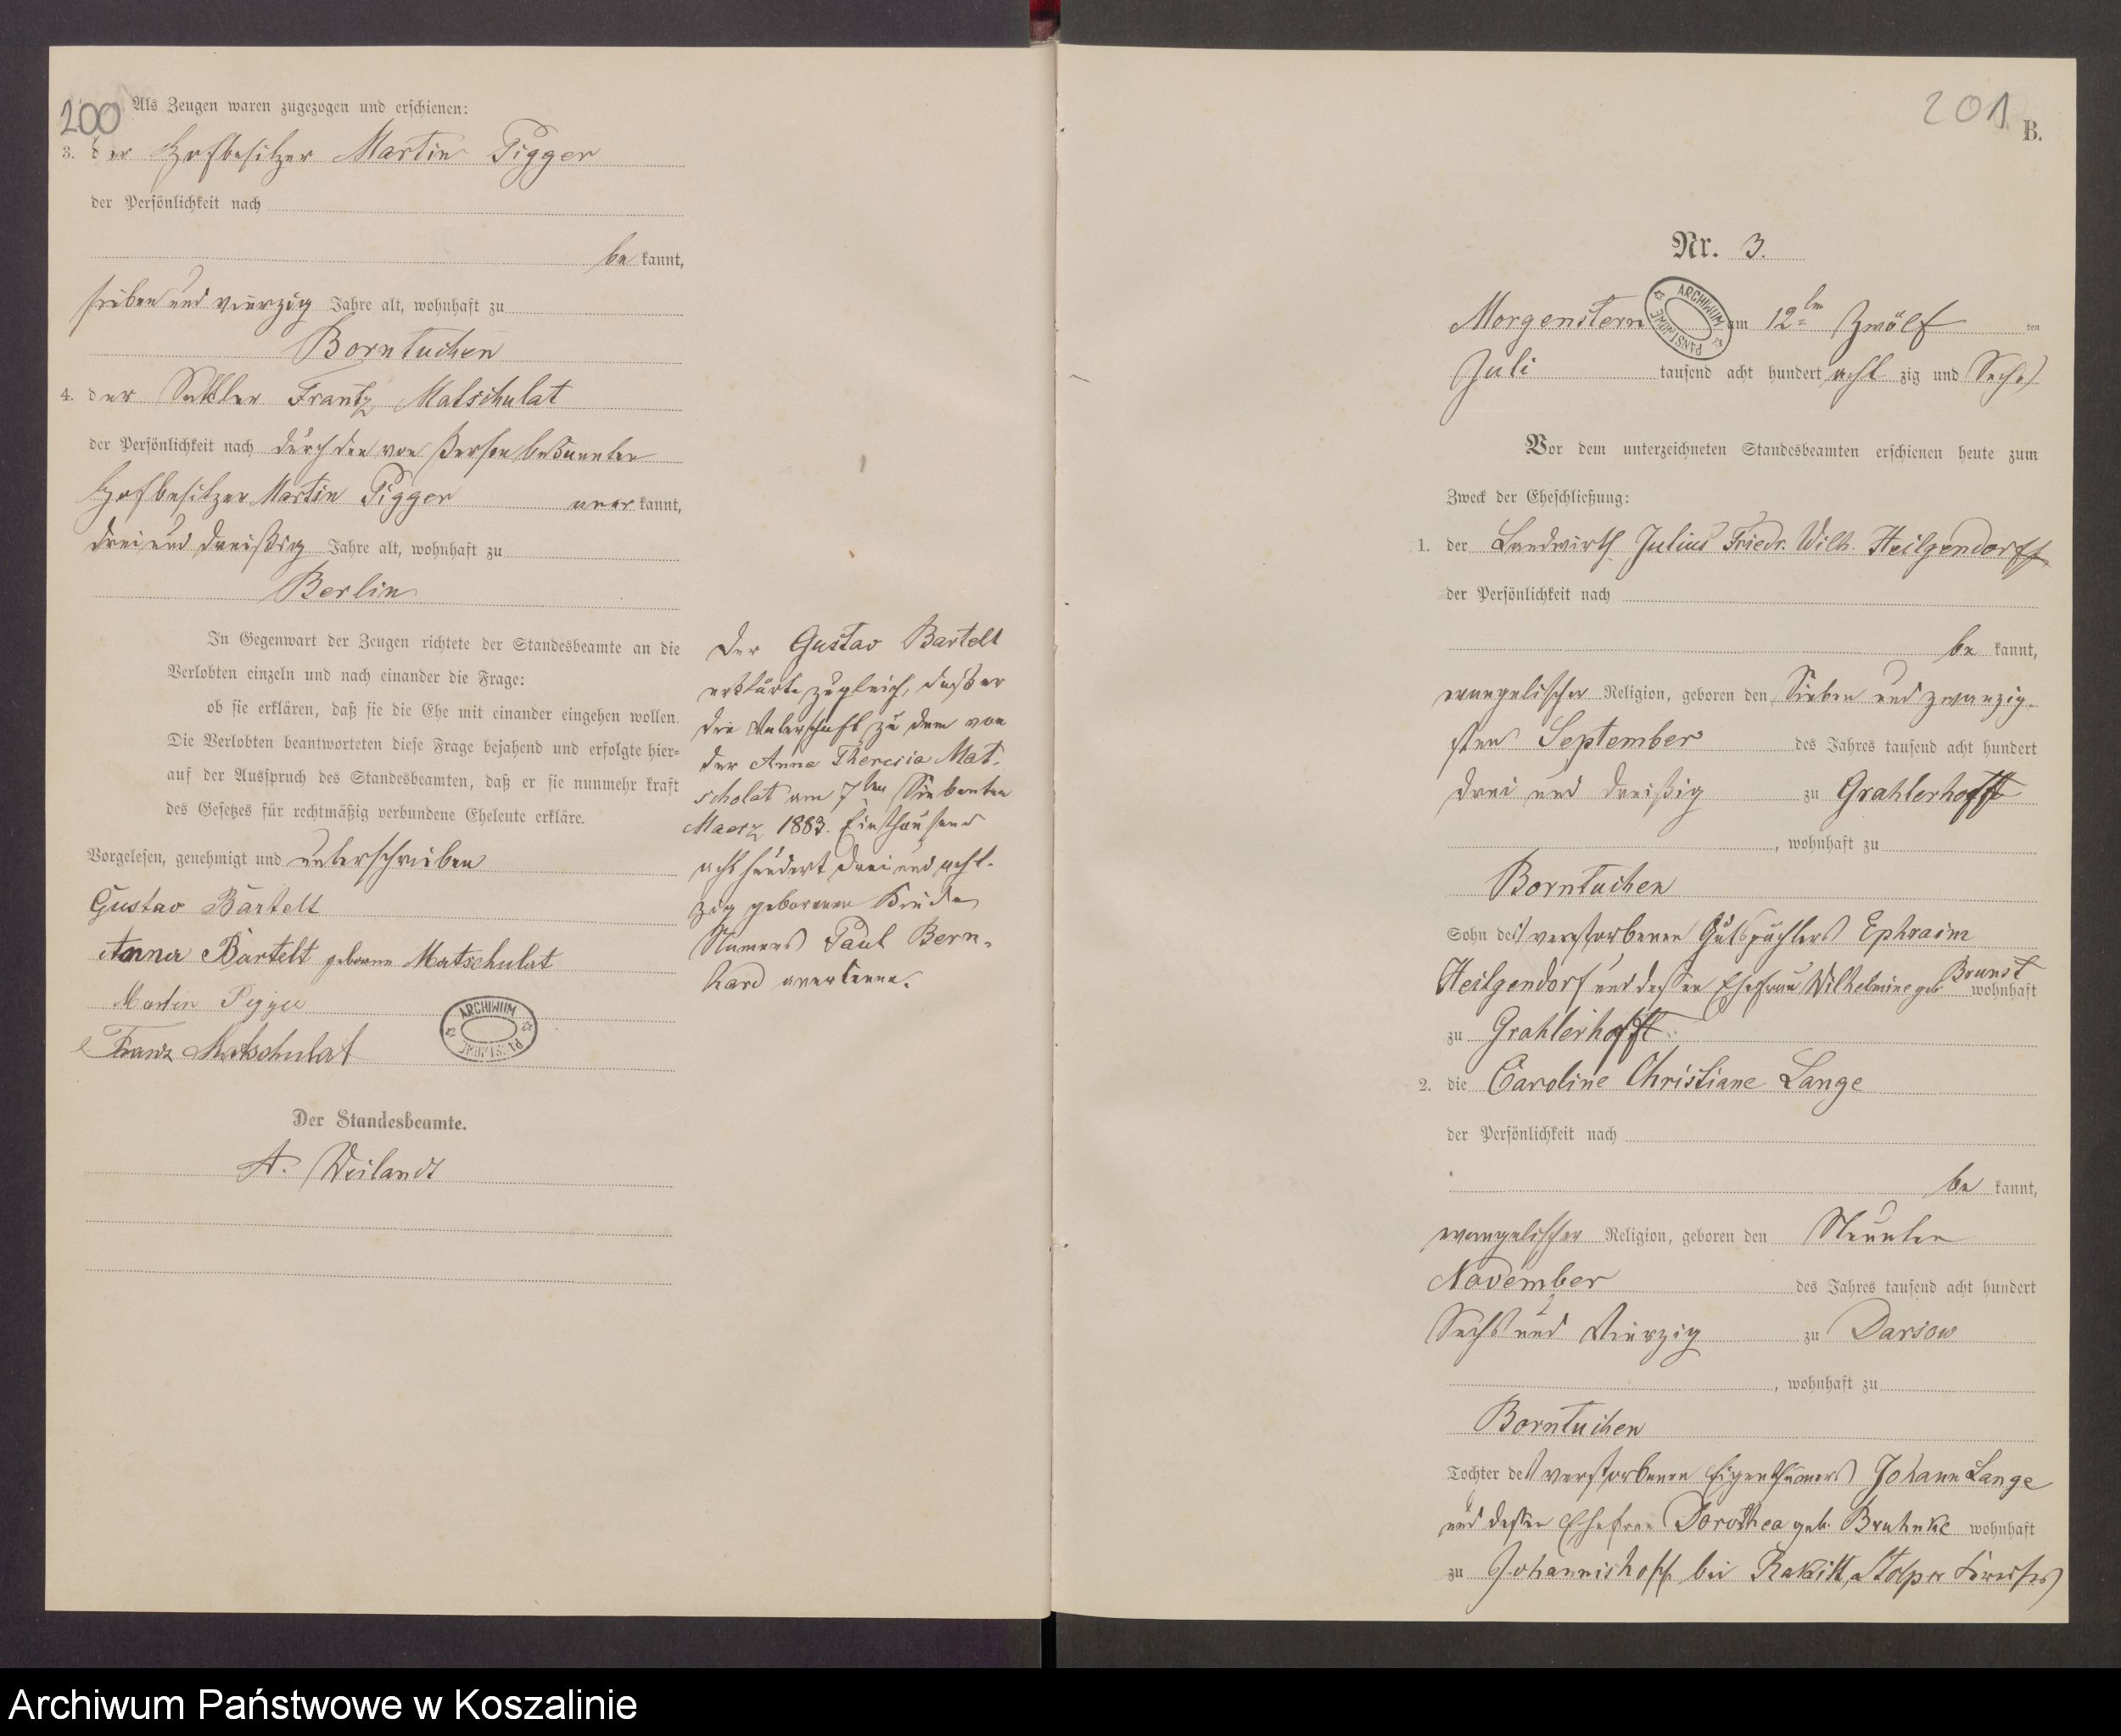 200
Als Zeugen waren zugezogen und erschienen:
3. der Hofbesitzer Martin Pigger
der Persönlichkeit nach
be kannt,
sieben und vierzig Jahre alt, wohnhaft zu
Borntuchen
4. der Sattler Frantz Matschulat
der Persönlichkeit nach durch den von Person bekannten
Hofbesitzer Martin Pigger aner kannt,
drei und dreißig Jahre alt, wohnhaft zu
Berlin
In Gegenwart der Zeugen richtete der Standesbeamte an die
Verlobten einzeln und nach einander die Frage:
ob sie erklären, daß sie die Ehe mit einander eingehen wollen.
Die Verlobten beantworteten diese Frage bejahend und erfolgte hier-
auf der Ausspruch des Standesbeamten, daß er sie nunmehr kraft
des Gesetzes für rechtmäßig verbundene Eheleute erkläre.
Vorgelesen, genehmigt und unterschrieben
Gustav Bartelt
Anna Bartelt geborene Matschulat
Martin Pigger
Franz Matschulat
ARCHIWUM PAŃSTWOWE
Der Standesbeamte.
A. Weilandt
Der Gustav Bartelt
erklärte zugleich, daß er
die Vaterschaft zu dem von
der Anna Theresia Mat-
scholat am 7ten Siebenten
Maerz 1883. Einthausend
acht hundert drei und acht-
zig geborenen Kinde
Namens Paul Bern-
hard anerkenne.
201
B.
Nr. 3.
Morgenstern am 12ten Zwölf ten
ARCHIWUM PAŃSTWOWE
Juli tausend acht hundert acht zig und Sechs
Vor dem unterzeichneten Standesbeamten erschienen heute zum
Zweck der Eheschließung:
1. der Landwirth Julius Friedr. Wilh. Heilgendorff
der Persönlichkeit nach
be kannt,
evangelischer Religion, geboren den Sieben und zwanzig-
sten September des Jahres tausend acht hundert
drei und dreißig zu Grahlerhofft
, wohnhaft zu
Borntuchen
Sohn des verstorbenen Gutspächters Ephraim
Heilgendorf und dessen Ehefrau Wilhelmine geb. Brunst wohnhaft
zu Grahlerhofft
2. die Caroline Christiane Lange
der Persönlichkeit nach
be kannt,
evangelischer Religion, geboren den Neunten
November des Jahres tausend acht hundert
Sechs und Vierzig zu Darsow
, wohnhaft zu
Borntuchen
Tochter des verstorbenen Eigenthümers Johann Lange
und dessen Ehefrau Dorothea geb. Bruhnke wohnhaft
zu Johannishoff bei Rakitt, Stolper Kreises
Archiwum Państwowe w Koszalinie